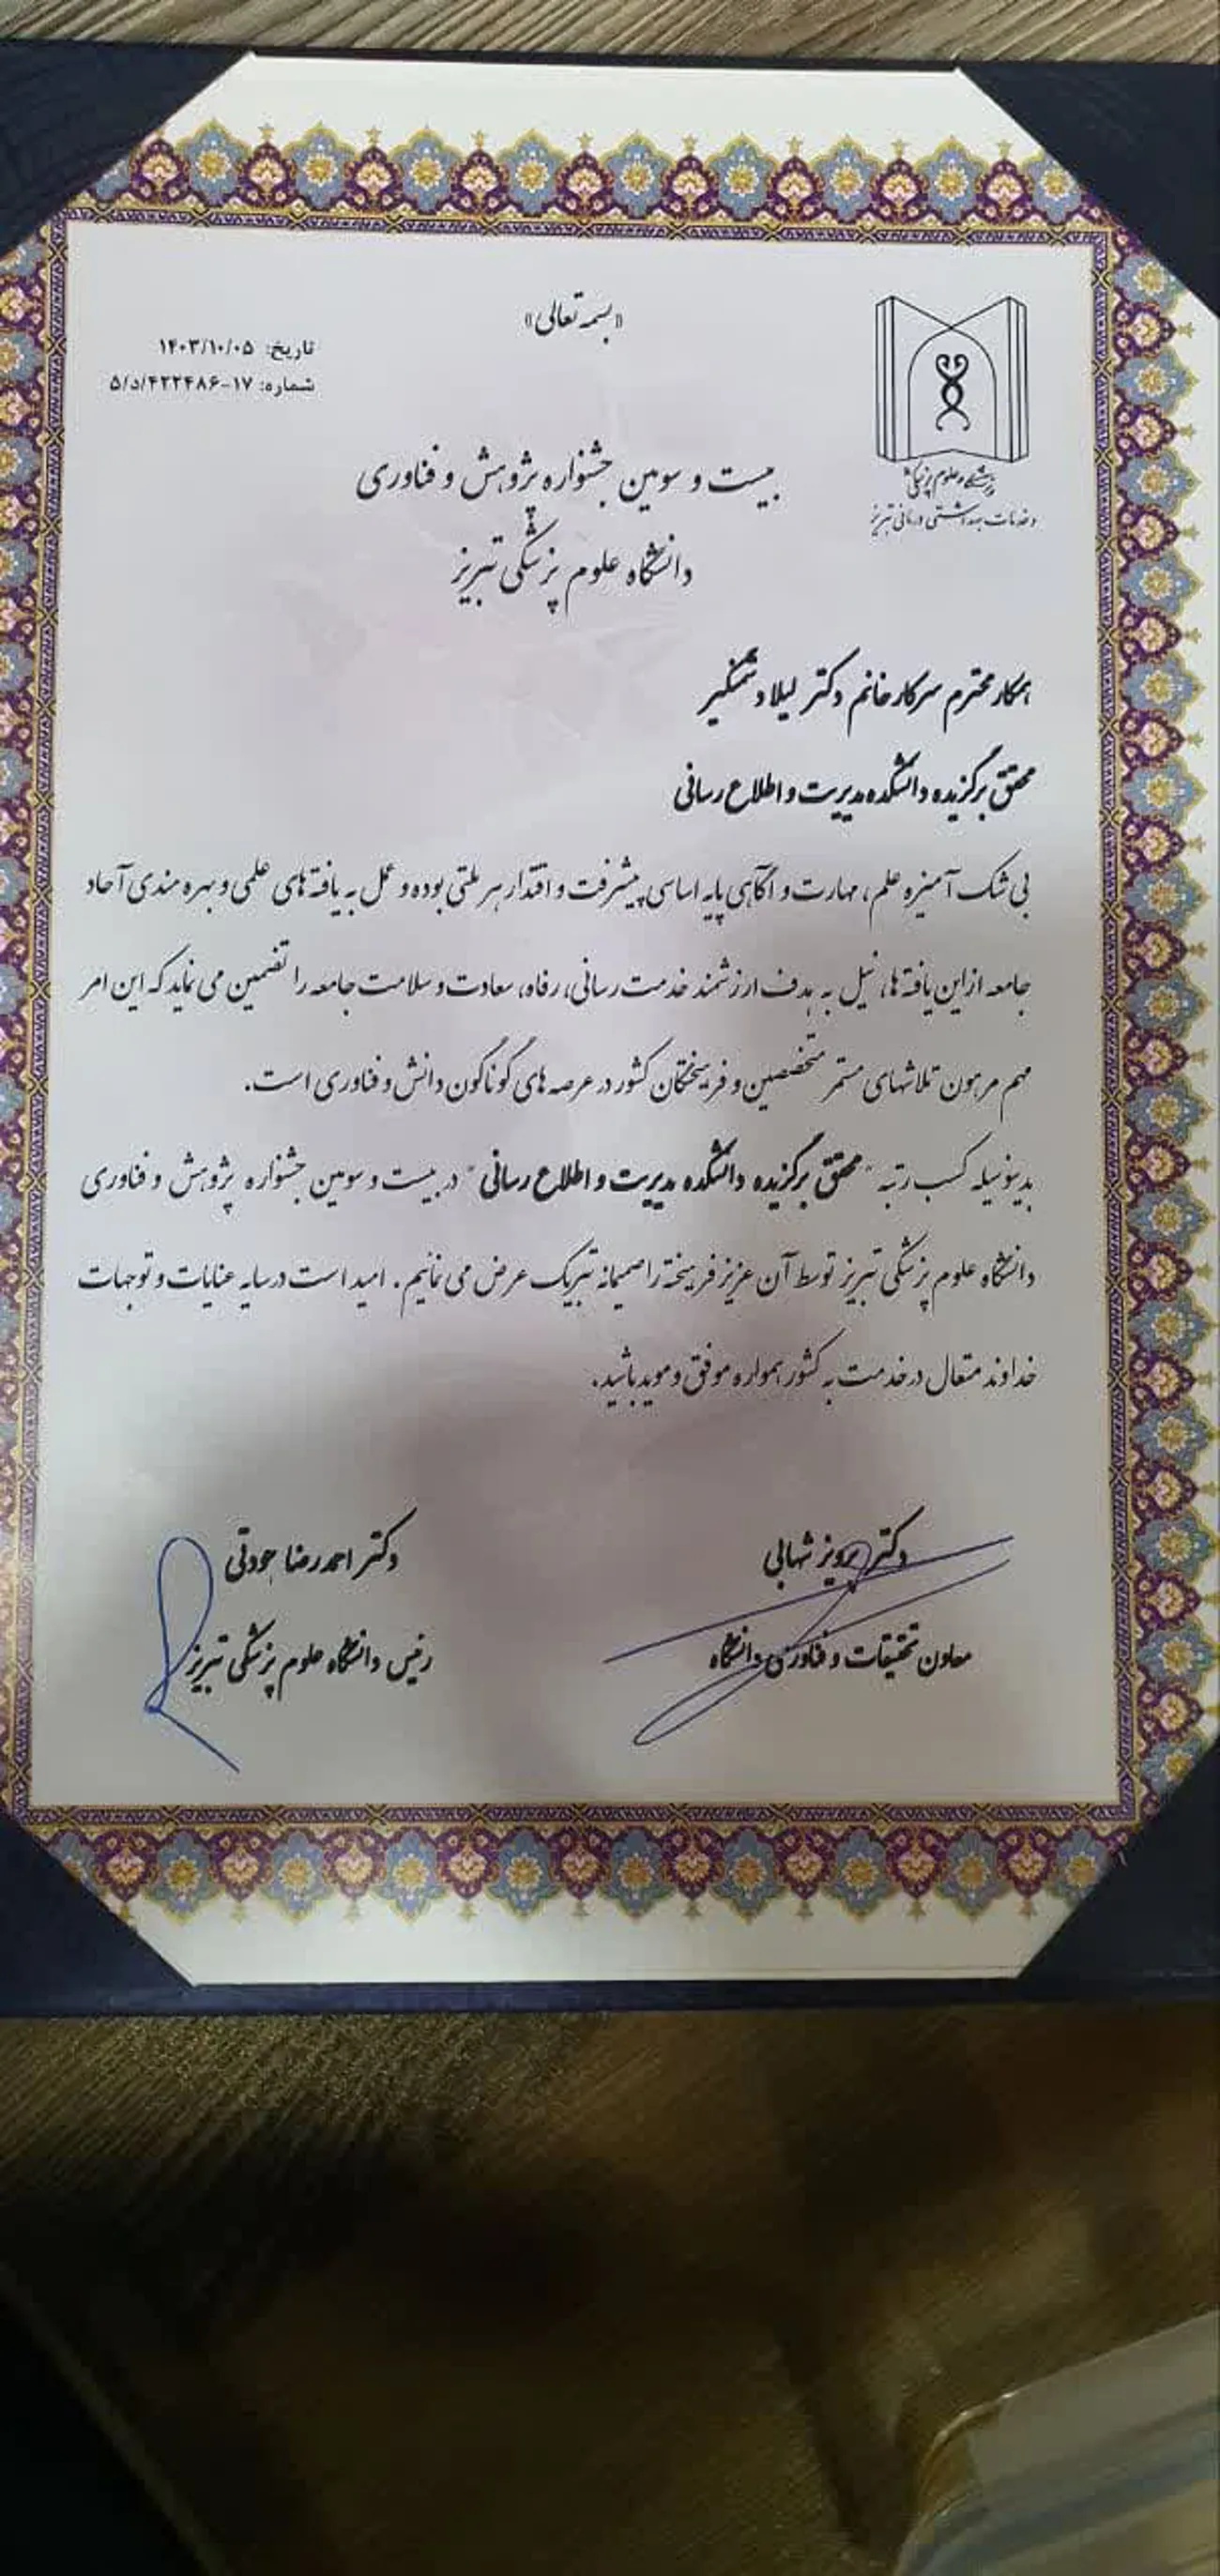 «بسمه تعالی»
تاریخ: ۱۴۰۳/۱۰/۰۵
شماره: ۱۷-۵/د/۴۲۲۴۸۶
دانشگاه علوم پزشکی
و خدمات بهداشتی درمانی تبریز
بیست و سومین جشنواره پژوهش و فناوری
دانشگاه علوم پزشکی تبریز
همکار محترم سرکار خانم دکتر لیلا دشمنگیر
محقق برگزیده دانشکده مدیریت و اطلاع رسانی
بی شک آمیزه علم، مهارت و آگاهی پایه اساسی پیشرفت و اقتدار هر ملتی بوده و عمل به یافته های علمی و بهره مندی آحاد
جامعه از این یافته ها، نیل به هدف ارزشمند خدمت رسانی، رفاه، سعادت و سلامت جامعه را تضمین می نماید که این امر
مهم مرهون تلاشهای مستمر متخصصین و فرهیختگان کشور در عرصه های گوناگون دانش و فناوری است.
بدینوسیله کسب رتبه "محقق برگزیده دانشکده مدیریت و اطلاع رسانی" در بیست و سومین جشنواره پژوهش و فناوری
دانشگاه علوم پزشکی تبریز توسط آن عزیز فرهیخته را صمیمانه تبریک عرض می نمائیم. امید است در سایه عنایات و توجهات
خداوند متعال در خدمت به کشور همواره موفق و موید باشید.
دکتر پرویز شهابی
معاون تحقیقات و فناوری دانشگاه
دکتر احمدرضا جودتی
رئیس دانشگاه علوم پزشکی تبریز